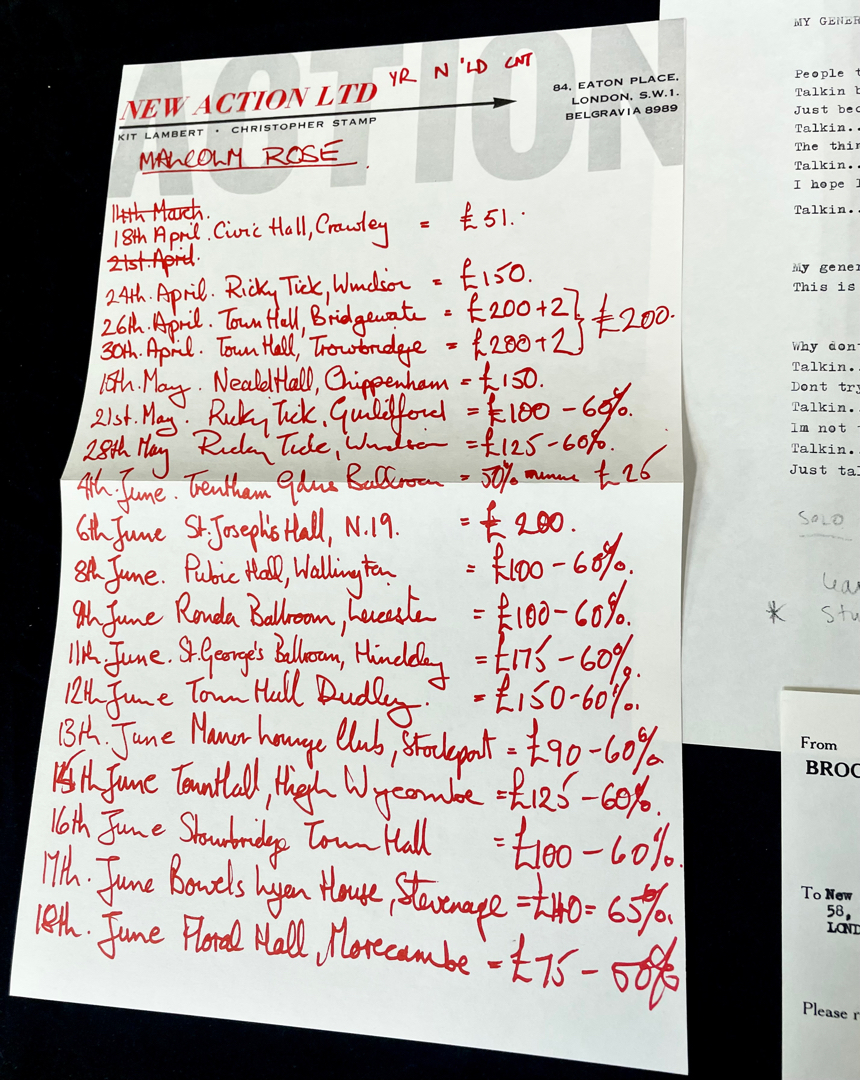 ACTION
YR N 'LD CNT
NEW ACTION LTD
KIT LAMBERT · CHRISTOPHER STAMP
84, EATON PLACE,
LONDON, S.W.1.
BELGRAVIA 8989
MALCOLM ROSE
11th March.
18th April. Civic Hall, Crawley = £51.
21st. April.
24th. April. Ricky Tick, Windsor = £150.
26th. April. Town Hall, Bridgewate = £200+2
30th. April. Town Hall, Trowbridge = £200+2 } £200.
15th. May. Neald Hall, Chippenham = £150.
21st. May. Ricky Tick, Guildford = £100 - 60%.
28th May Ricky Tick, Windsor = £125-60%.
4th. June. Trentham Gdns Ballroom = 50% minus £25
6th June St. Joseph's Hall, N.19. = £200.
8th June. Pubic Hall, Wallington = £100 - 60%.
9th June Ronda Ballroom, Leicester = £100-60%.
11th. June. St. George's Ballroom, Hinckley = £175 - 60%.
12th June Town Hall Dudley. = £150-60%.
13th. June Manor Lounge Club, Stockport = £90 - 60%
15th June Town Hall, High Wycombe = £125 - 60%.
16th June Stourbridge Town Hall = £100 - 60%.
17th. June Bowels Lyen House, Stevenage = £40 = 65%.
18th. June Floral Hall, Morecambe = £75 - 50%
MY GENER
People t
Talkin b
Just bec
Talkin..
The thin
Talkin..
I hope I
Talkin..
My gener
This is
Why don'
Talkin..
Dont try
Talkin..
Im not
Talkin..
Just tal
SOLO
* Stu
From
BROO
To New
58,
LOND
Please r